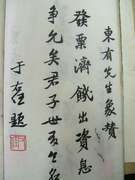 東有先生象贊
發粟濟餓出資息
爭允矣君子世多
于右任題